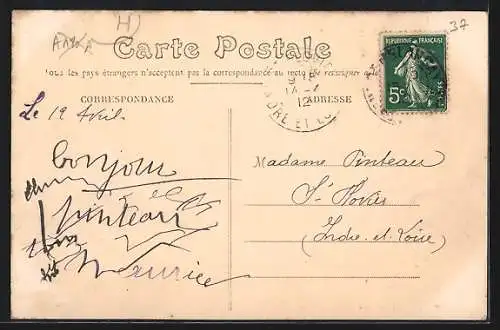 37
Carte Postale
Tous les pays étrangers n'acceptent pas la correspondance au recto
CORRESPONDANCE
ADRESSE
RÉPUBLIQUE FRANÇAISE
5c
12
INDRE ET LO
Le 19 Avril
bonjour
pinteau
Maurice
Madame Pinteau
St
Indre-et-Loire